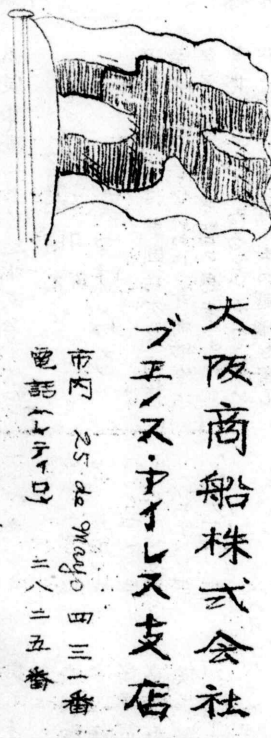 大阪商船株式会社
ブエノス・アイレス支店
市内 25 de Mayo 四三一番
電話(レティロ) 二八二五番